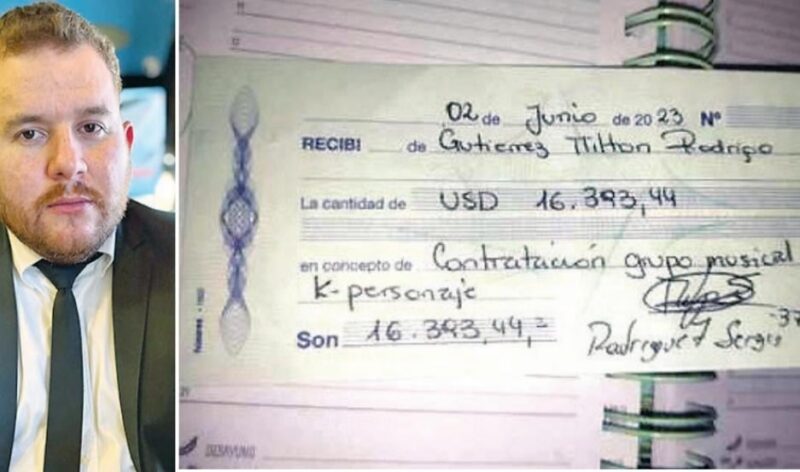 02 de Junio de 2023 Nº
RECIBI de Gutierrez Milton Rodrigo
La cantidad de USD 16.393,44
en concepto de Contratación grupo musical
K-personaje
Son 16.393,44,=
Rodriguez Sergio
DESAYUNO